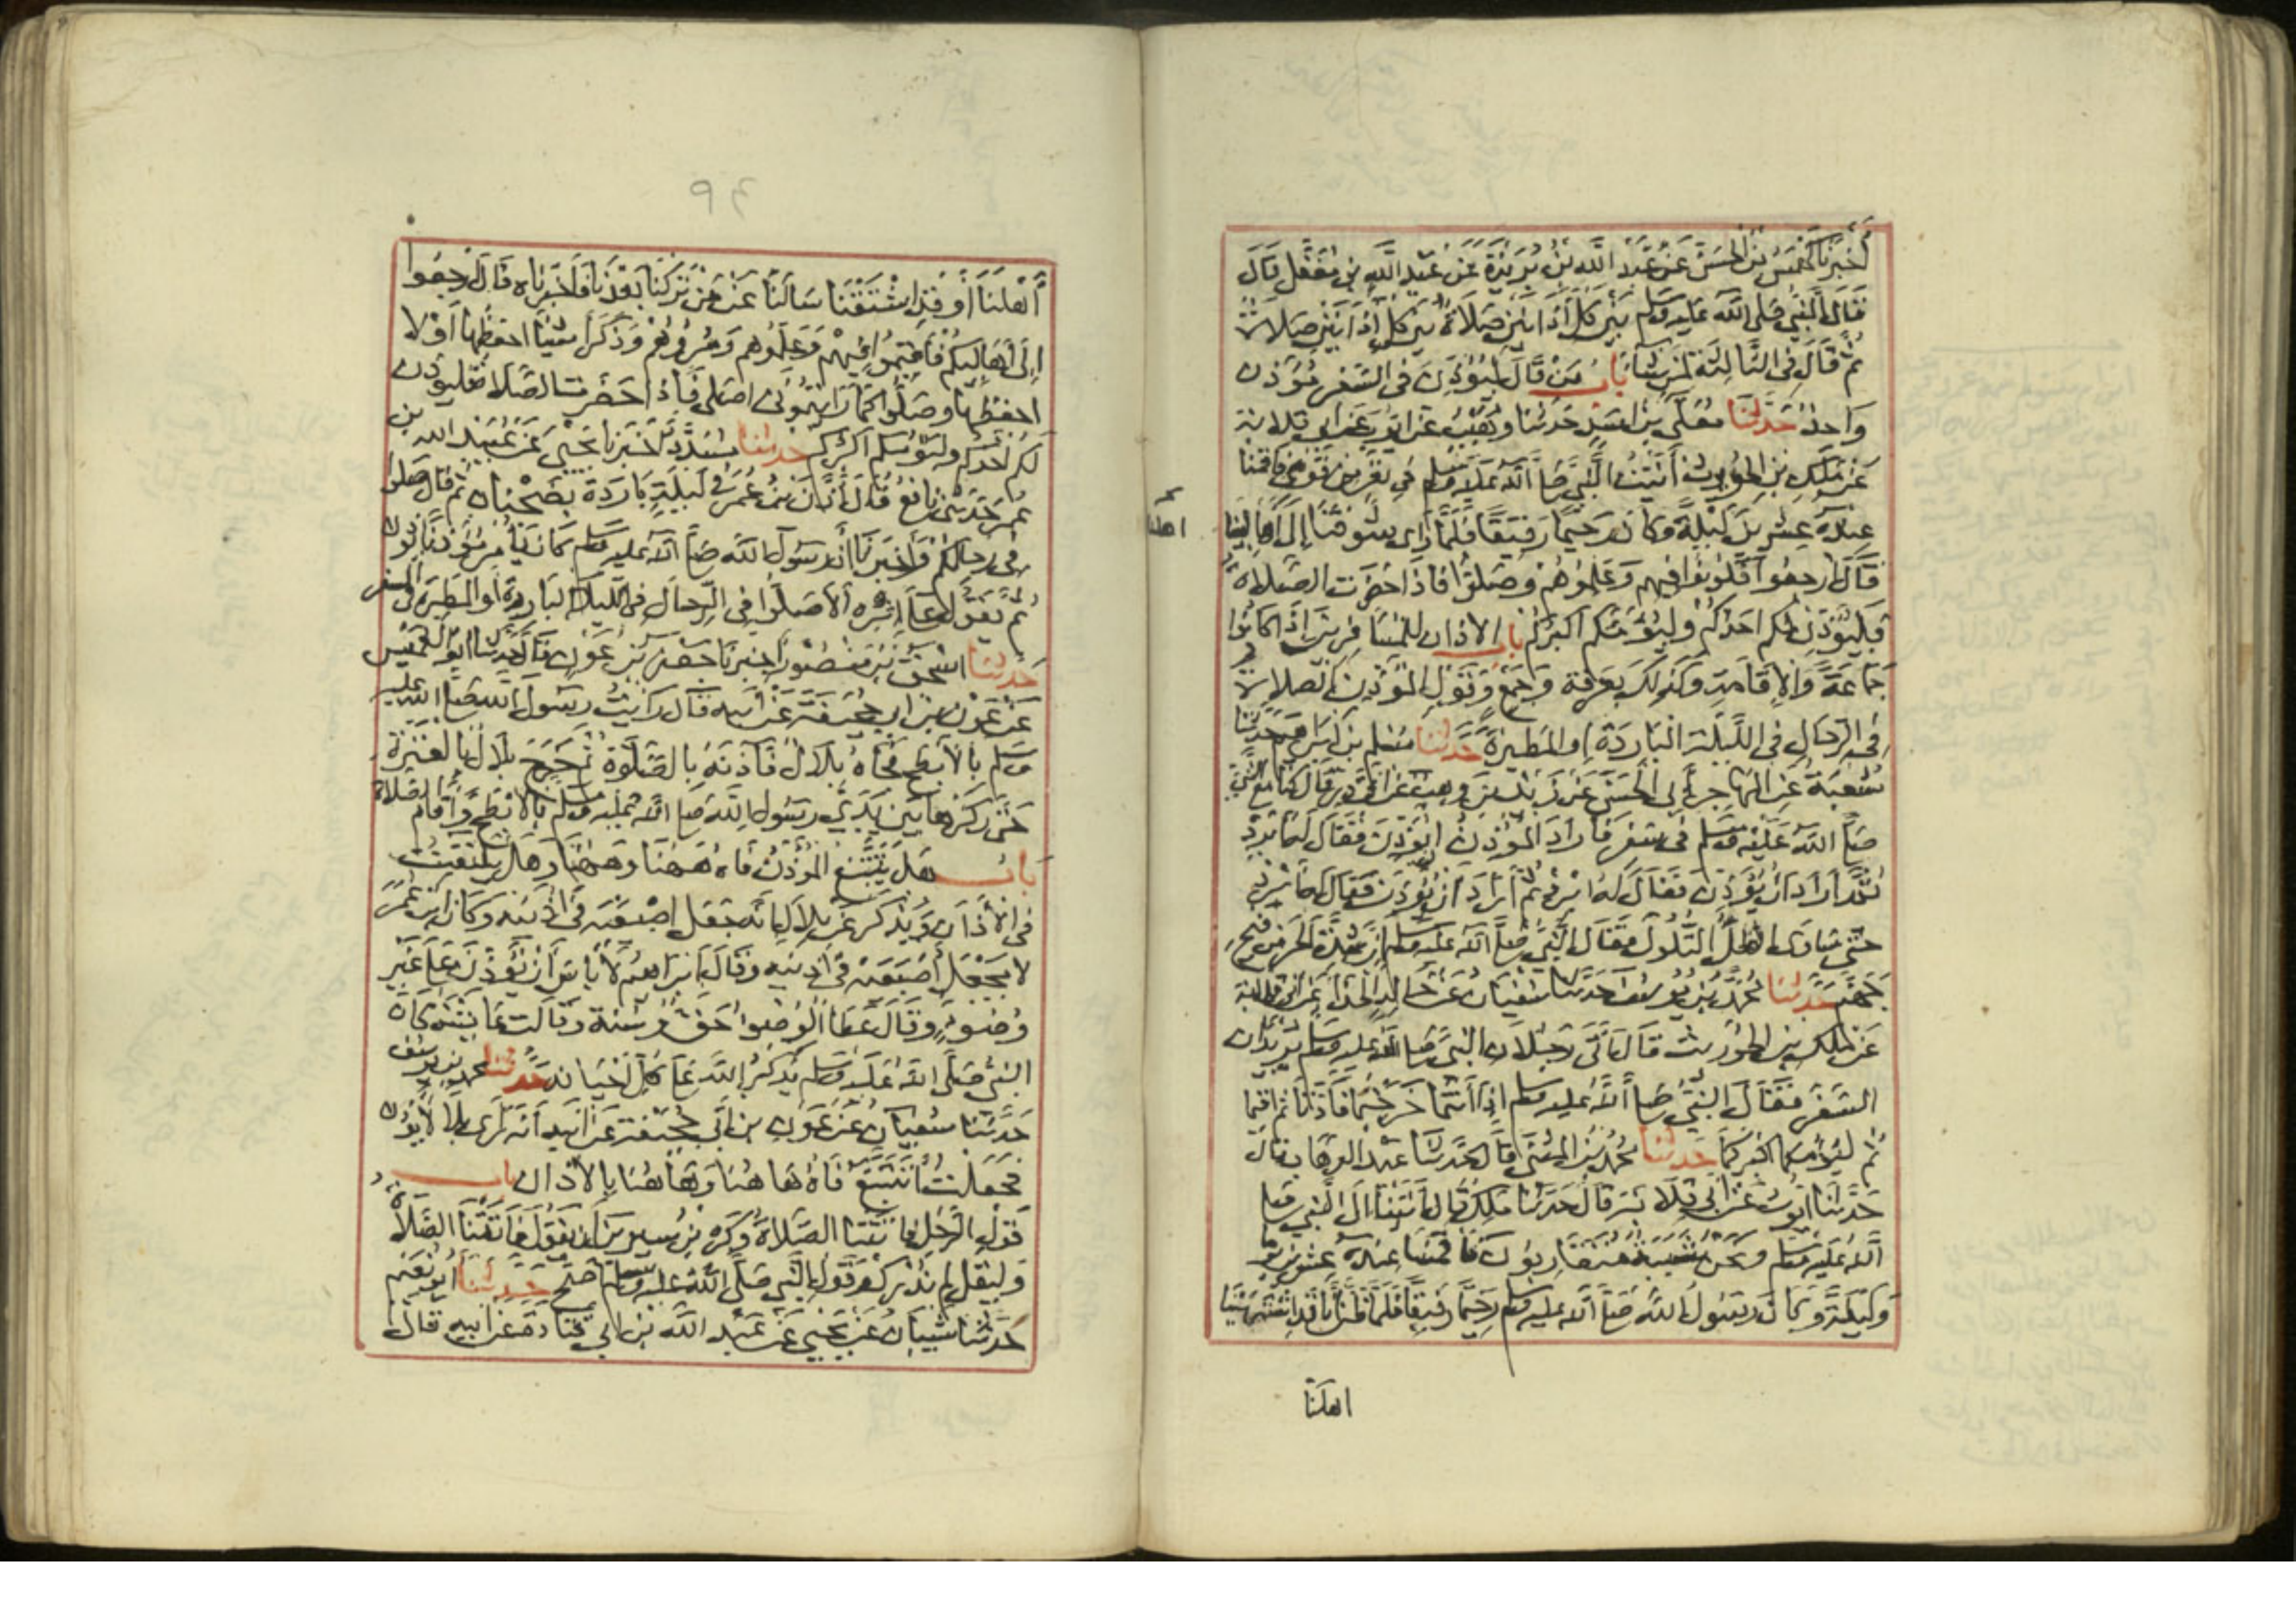 أخبرنا كهمس بن الحسن عن عبد الله بن بريدة عن عبد الله بن مغفل قال
قال النبي صلى الله عليه وسلم بين كل أذانين صلاة بين كل أذانين صلاة
ثم قال في الثالثة لمن شاء باب من قال ليؤذن في السفر مؤذن
واحد حدثنا معلى بن اسد حدثنا وهيب عن ايوب عن ابي قلابة
عن ملك بن الحويرث أتيت النبي صلى الله عليه وسلم في نفر من قومي فاقمنا
عنده عشرين ليلة وكان رحيما رفيقا فلما رأى شوقنا إلى أهالينا
اهلنا
قال ارجعوا فكونوا فيهم وعلموهم وصلوا فاذا حضرت الصلاة
فليؤذن لكم احدكم وليؤمكم اكبركم باب الاذان للمسافرين اذا كانوا
جماعة والاقامة وكذلك بعرفة وجمع وقول المؤذن الصلاة
في الرحال في الليلة الباردة او المطيرة حدثنا مسلم بن ابراهيم حدثنا
شعبة عن المهاجر أبي الحسن عن زيد بن وهب عن ابي ذر قال كنا مع النبي
صلى الله عليه وسلم في سفر فأراد المؤذن ان يؤذن فقال له ابرد
ثم أراد ان يؤذن فقال له ابرد ثم أراد ان يؤذن فقال له ابرد
حتى ساوى الظل التلول فقال النبي صلى الله عليه وسلم إن شدة الحر من فيح
جهنم حدثنا محمد بن يوسف حدثنا سفيان عن خالد الحذاء عن ابي قلابة
عن ملك بن الحويرث قال أتى رجلان النبي صلى الله عليه وسلم يريدان
السفر فقال النبي صلى الله عليه وسلم إذا أنتما خرجتما فأذنا ثم اقيما
ثم ليؤمكما اكبركما حدثنا محمد بن المثنى قال حدثنا عبد الوهاب قال
حدثنا ايوب عن ابي قلابة قال حدثنا ملك قال أتينا الى النبي صلى
الله عليه وسلم ونحن شببة متقاربون فأقمنا عنده عشرين يوما
وليلة وكان رسول الله صلى الله عليه وسلم رحيما رفيقا فلما ظن أنا قد اشتهينا
اهلنا
أهلنا أو قد اشتقنا سألنا عن من تركنا بعدنا فأخبرناه قال ارجعوا
إلى أهاليكم فأقيموا فيهم وعلموهم ومروهم وذكر أشياء احفظها أو لا
احفظها وصلوا كما رايتموني اصلي فإذا حضرت الصلاة فليؤذن
لكم احدكم وليؤمكم اكبركم حدثنا مسدد أخبرنا يحيى عن عبيد الله بن
عمر حدثني نافع قال أذن بن عمر في ليلة باردة بضجنان ثم قال صلوا
في رحالكم وأخبرنا أن رسول الله صلى الله عليه وسلم كان يأمر مؤذنا يؤذن
ثم يقول على إثره ألا صلوا في الرحال في الليلة الباردة أو المطيرة في السفر
حدثنا اسحق بن منصور اخبرنا جعفر بن عون قال حدثنا ابو العميس
عن عون بن ابي جحيفة عن أبيه قال رأيت رسول الله صلى الله عليه
وسلم بالأبطح فجاءه بلال فآذنه بالصلوة ثم خرج بلال بالعنزة
حتى ركزها بين يدي رسول الله صلى الله عليه وسلم بالأبطح وأقام الصلاة
باب هل يتتبع المؤذن فاه ههنا وههنا وهل يلتفت
في الأذان ويذكر عن بلال انه جعل إصبعيه في أذنيه وكان ابن عمر
لا يجعل أصبعيه في أذنيه وقال ابراهيم لا باس أن يؤذن على غير
وضوء وقال عطاء الوضوء حق وسنة وقالت عائشة كان
النبي صلى الله عليه وسلم يذكر الله على كل أحيانه حدثنا محمد بن يوسف
حدثنا سفيان عن عون بن أبي جحيفة عن ابيه أنه رأى بلالا يؤذن
فجعلت أتتبع فاه هاهنا وهاهنا بالأذان باب
قول الرجل فاتتنا الصلاة وكره بن سيرين أن يقول فاتتنا الصلاة
وليقل لم ندرك وقول النبي صلى الله عليه وسلم أصح حدثنا أبو نعيم
حدثنا شيبان عن يحيى عن عبد الله بن ابي قتادة عن ابيه قال